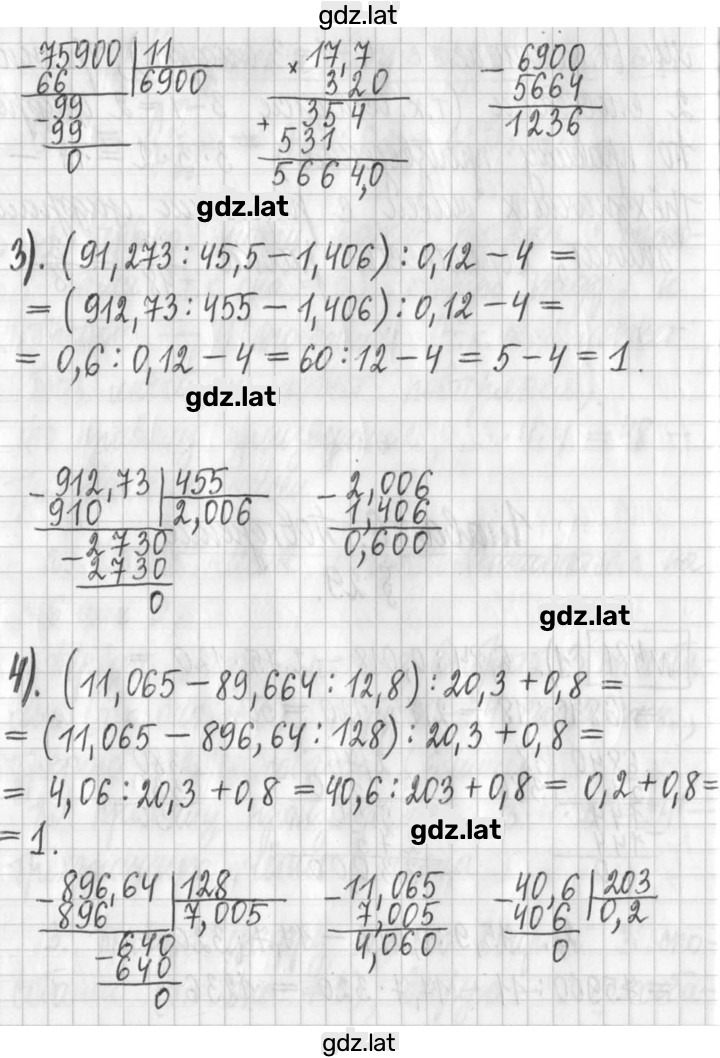 gdz.lat
- 75900 | 11      × 17,7      - 6900
66 | 6900      320      5664
- 99      + 354      1236
99      531
0      5664,0
gdz.lat
3). (91,273 : 45,5 - 1,406) : 0,12 - 4 =
= (912,73 : 455 - 1,406) : 0,12 - 4 =
= 0,6 : 0,12 - 4 = 60 : 12 - 4 = 5 - 4 = 1.
gdz.lat
- 912,73 | 455      - 2,006
910 | 2,006      1,406
- 2730      0,600
2730
0
gdz.lat
4). (11,065 - 89,664 : 12,8) : 20,3 + 0,8 =
= (11,065 - 896,64 : 128) : 20,3 + 0,8 =
= 4,06 : 20,3 + 0,8 = 40,6 : 203 + 0,8 = 0,2 + 0,8 =
= 1.
gdz.lat
- 896,64 | 128      - 11,065      - 40,6 | 203
896 | 7,005      7,005      40 6 | 0,2
- 640      4,060      0
640
0
gdz.lat